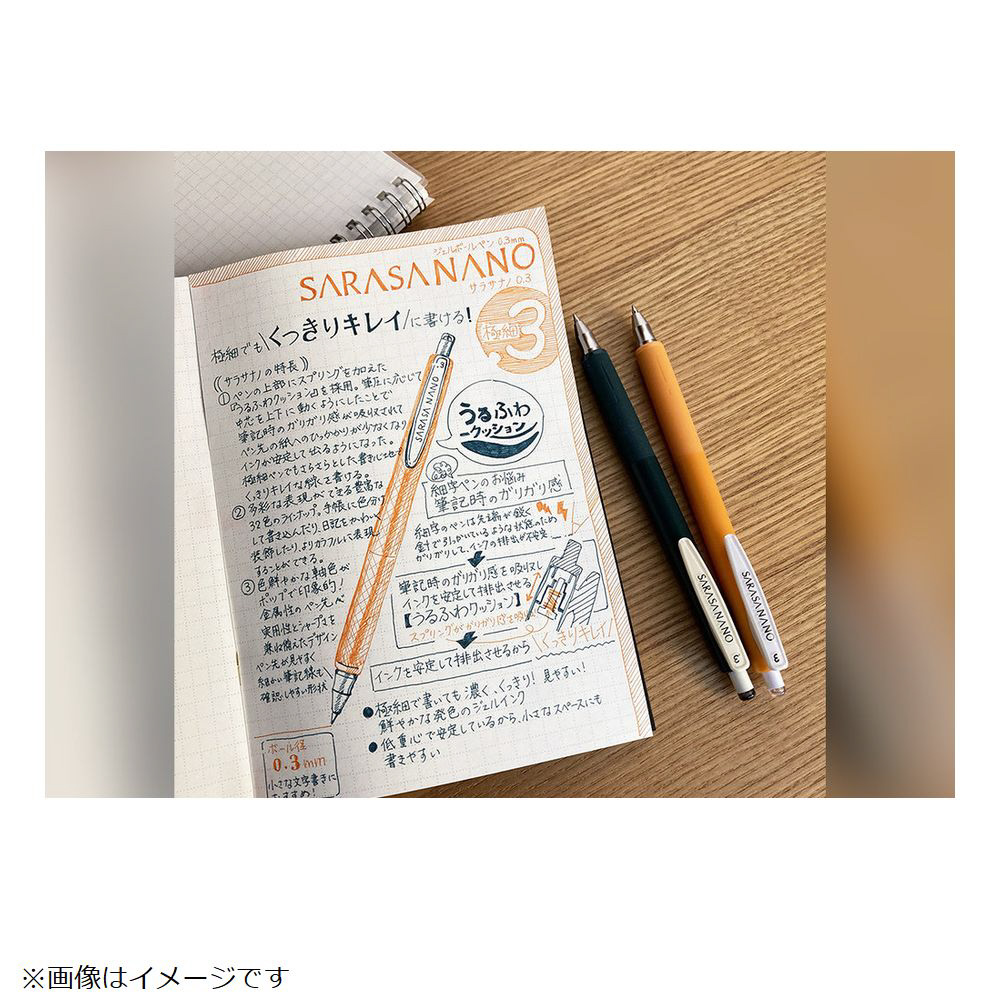 ジェルボールペン 0.3mm
SARASA NANO
サラサナノ 0.3
極細でも\くっきりキレイ/に書ける!
極細 .3
((サラサナノの特長))
①ペンの上部にスプリングを加えた
「うるふわクッション」を採用。筆圧に応じて
中芯を上下に動くようにしたことで
筆記時のガリガリ感が吸収されて
ペン先の紙へのひっかかりが少なくなり
インクが安定して出るようになった。
極細ペンでもさらさらとした書き心地で
くっきりキレイな細くを書ける。
②多彩な表現ができる豊富な
32色のラインナップ。手帳に色分け
して書き込んだり、日記をかわいく
装飾したり、よりカラフルに表現
することができる。
③色鮮やかな軸色が
ポップで印象的!
金属性のペン先へ
実用性とシャープさを
兼ね備えたデザイン
ペン先が見やすく
細かい筆記線も
確認しやすい形状
.3
SARASA NANO
うるふわ
クッション
細字ペンのお悩み
筆記時のガリガリ感
細字のペンは先端が鋭く
針で引っかいているような状態のため
ガリガリして、インクの排出が不安定
筆記時のガリガリ感を吸収し
インクを安定して排出させる
【うるふわクッション】
スプリングがガリガリ感を吸収
インクを安定して排出させるから
\くっきりキレイ/
●極細で書いても濃く、くっきり!見やすい!
鮮やかな発色のジェルインク
●低重心で安定しているから、小さなスペースにも
書きやすい
ボール径
0.3mm
小さな文字書きに
おすすめ!
SARASA NANO 3
SARASA NANO 3
※画像はイメージです